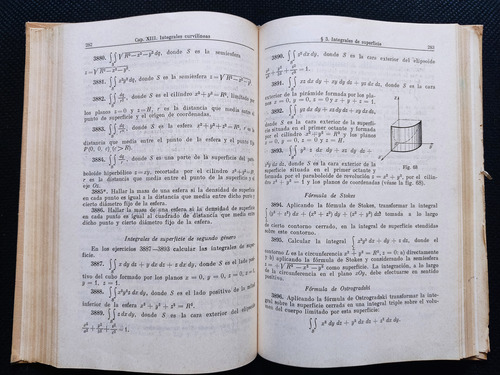 382 Cap. XIII. Integrales curvilíneas
3880. ∫∫ √R² — x² — y² dq, donde S es la semiesfera
z = √R² — x² — y².
3881. ∫∫ x²y² dq, donde S es la semiesfera z = √R² — x² — y².
3882. ∫∫ dq/r², donde S es el cilindro x² + y² = R², limitado por
los planos z = 0 y z = H, r es la distancia que media entre el
punto de superficie y el origen de coordenadas.
3883. ∫∫ dq/r, donde S es la esfera x² + y² + z² = R², r es la
distancia que media entre el punto de la esfera y el punto
P (0, 0, c) (c > R).
3884. ∫∫ dq/r, donde S es una parte de la superficie del para-
boloide hiperbólico z = xy, recortado por el cilindro x² + y² = R² y
r es la distancia que media entre el punto de la superficie y el
eje Oz.
3885*. Hallar la masa de una esfera si la densidad de superficie
en cada punto es igual a la distancia que media entre dicho punto y
cierto diámetro fijo de la esfera.
3886. Hallar la masa de una esfera, si la densidad de superficie
en cada punto es igual al cuadrado de distancia que media entre
dicho punto y cierto diámetro fijo de la esfera.
Integrales de superficie de segundo género
En los ejercicios 3887—3893 calcular las integrales de super-
ficie.
3887. ∫∫ x dy dz + y dx dz + z dx dy, donde S es el lado positi-
vo del cubo formado por los planos x = 0, y = 0, z = 0, x = 1,
y = 1, z = 1.
3888. ∫∫ x²y²z dx dy, donde S es el lado positivo de la mitad
inferior de la esfera x² + y² + z² = R².
3889. ∫∫ z dx dy, donde S es la cara exterior del elipsoide
x²/a² + y²/b² + z²/c² = 1.
§ 3. Integrales de superficie 383
3890. ∫∫ z² dx dy, donde S es la cara exterior del elipsoide
x²/a² + y²/b² + z²/c² = 1.
3891. ∫∫ xz dx dy + xy dy dz + yz dx dz, donde S es la cara
exterior de la pirámide formada por los pla-
nos x = 0, y = 0, z = 0 y x + y + z = 1.
3892. ∫∫ yz dx dy + xz dy dz + xy dx dz,
donde S es la cara exterior de la superfi-
cie situada en el primer octante y formada
por el cilindro x² + y² = R² y los planos
x = 0, y = 0, z = 0 y z = H.
3893. ∫∫ y²z dx dy + xz dy dz +
donde S es la cara exterior de la
superficie situada en el primer octante y
formada por el paraboloide de revolución z = x² + y², por el cilin-
dro x² + y² = 1 y los planos de coordenadas (véase la fig. 68).
Fig. 68
Fórmula de Stokes
3894. Aplicando la fórmula de Stokes, transformar la integral
∫ (y² + z²) dx + (x² + z²) dy + (x² + y²) dz tomada a lo largo
de cierto contorno cerrado, en la integral de superficie «tendida»
sobre este contorno.
3895. Calcular la integral ∫ x²y³ dx + dy + z dz, donde el
contorno L es la circunferencia x² + y² = R², z = 0: a) directamente
y b) aplicando la fórmula de Stokes y considerando la semiesfera
z = + √R² — x² — y² como superficie. La integración, a lo largo
de la circunferencia en el plano xOy, debe efectuarse en sentido
positivo.
Fórmula de Ostrogradski
3896. Aplicando la fórmula de Ostrogradski transformar la inte-
gral sobre la superficie cerrada en una integral triple sobre el volu-
men del cuerpo limitado por esta superficie:
∫∫ x² dy dz + y² dx dz + z² dx dy.